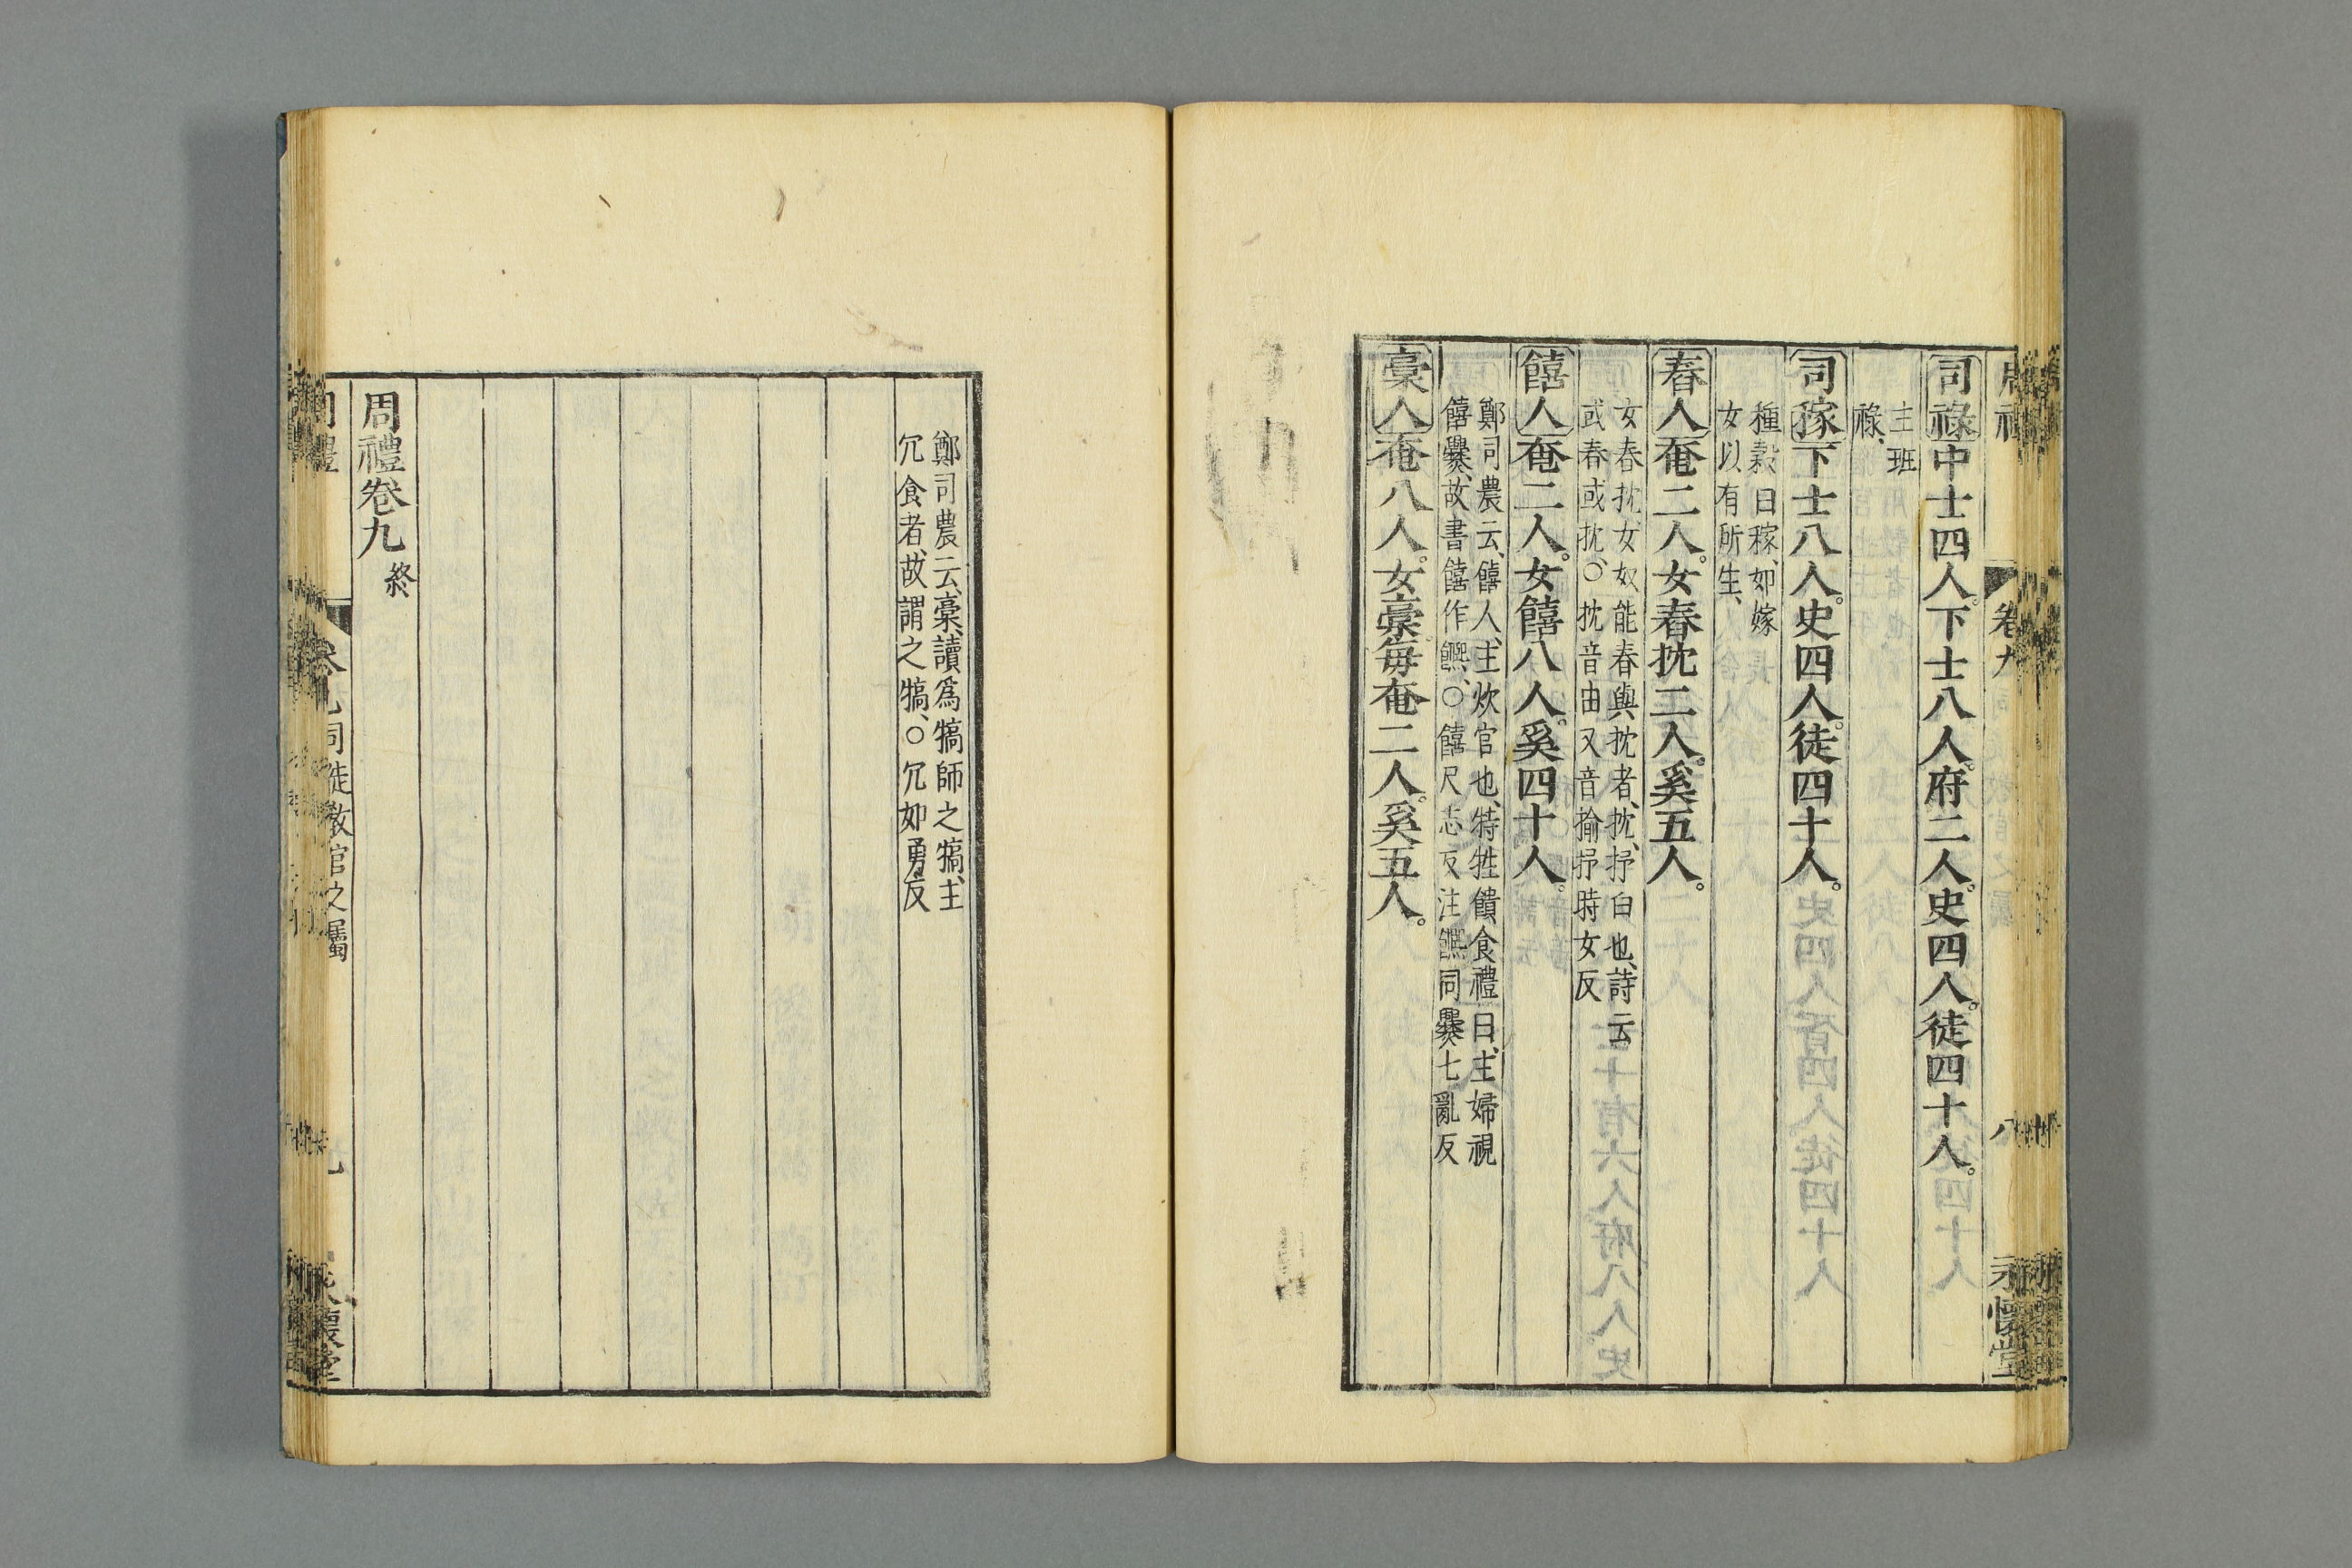 司祿中士四人。下士八人。府二人。史四人。徒四十人。
主班
祿、
司稼下士八人。史四人。徒四十人。
種穀曰稼、如嫁
女以有所生、
舂人奄二人。女舂抌二人。奚五人。
女舂抌、女奴能舂與抌者、抌、抒臼也、詩云
或舂或抌、○抌音由又音揄抒時女反
饎人奄二人。女饎八人。奚四十人。
鄭司農云、饎人、主炊官也、特牲饋食禮曰、主婦視
饎爨、故書饎作𩟄、○饎尺志反注𩟄同爨七亂反
槀人奄八人。女槀每奄二人。奚五人。
卷九
八
永懷堂
鄭司農云、槀、讀爲犒師之犒、主
冗食者、故謂之犒、○冗如勇反
周禮卷九終
司徒教官之屬
懷堂